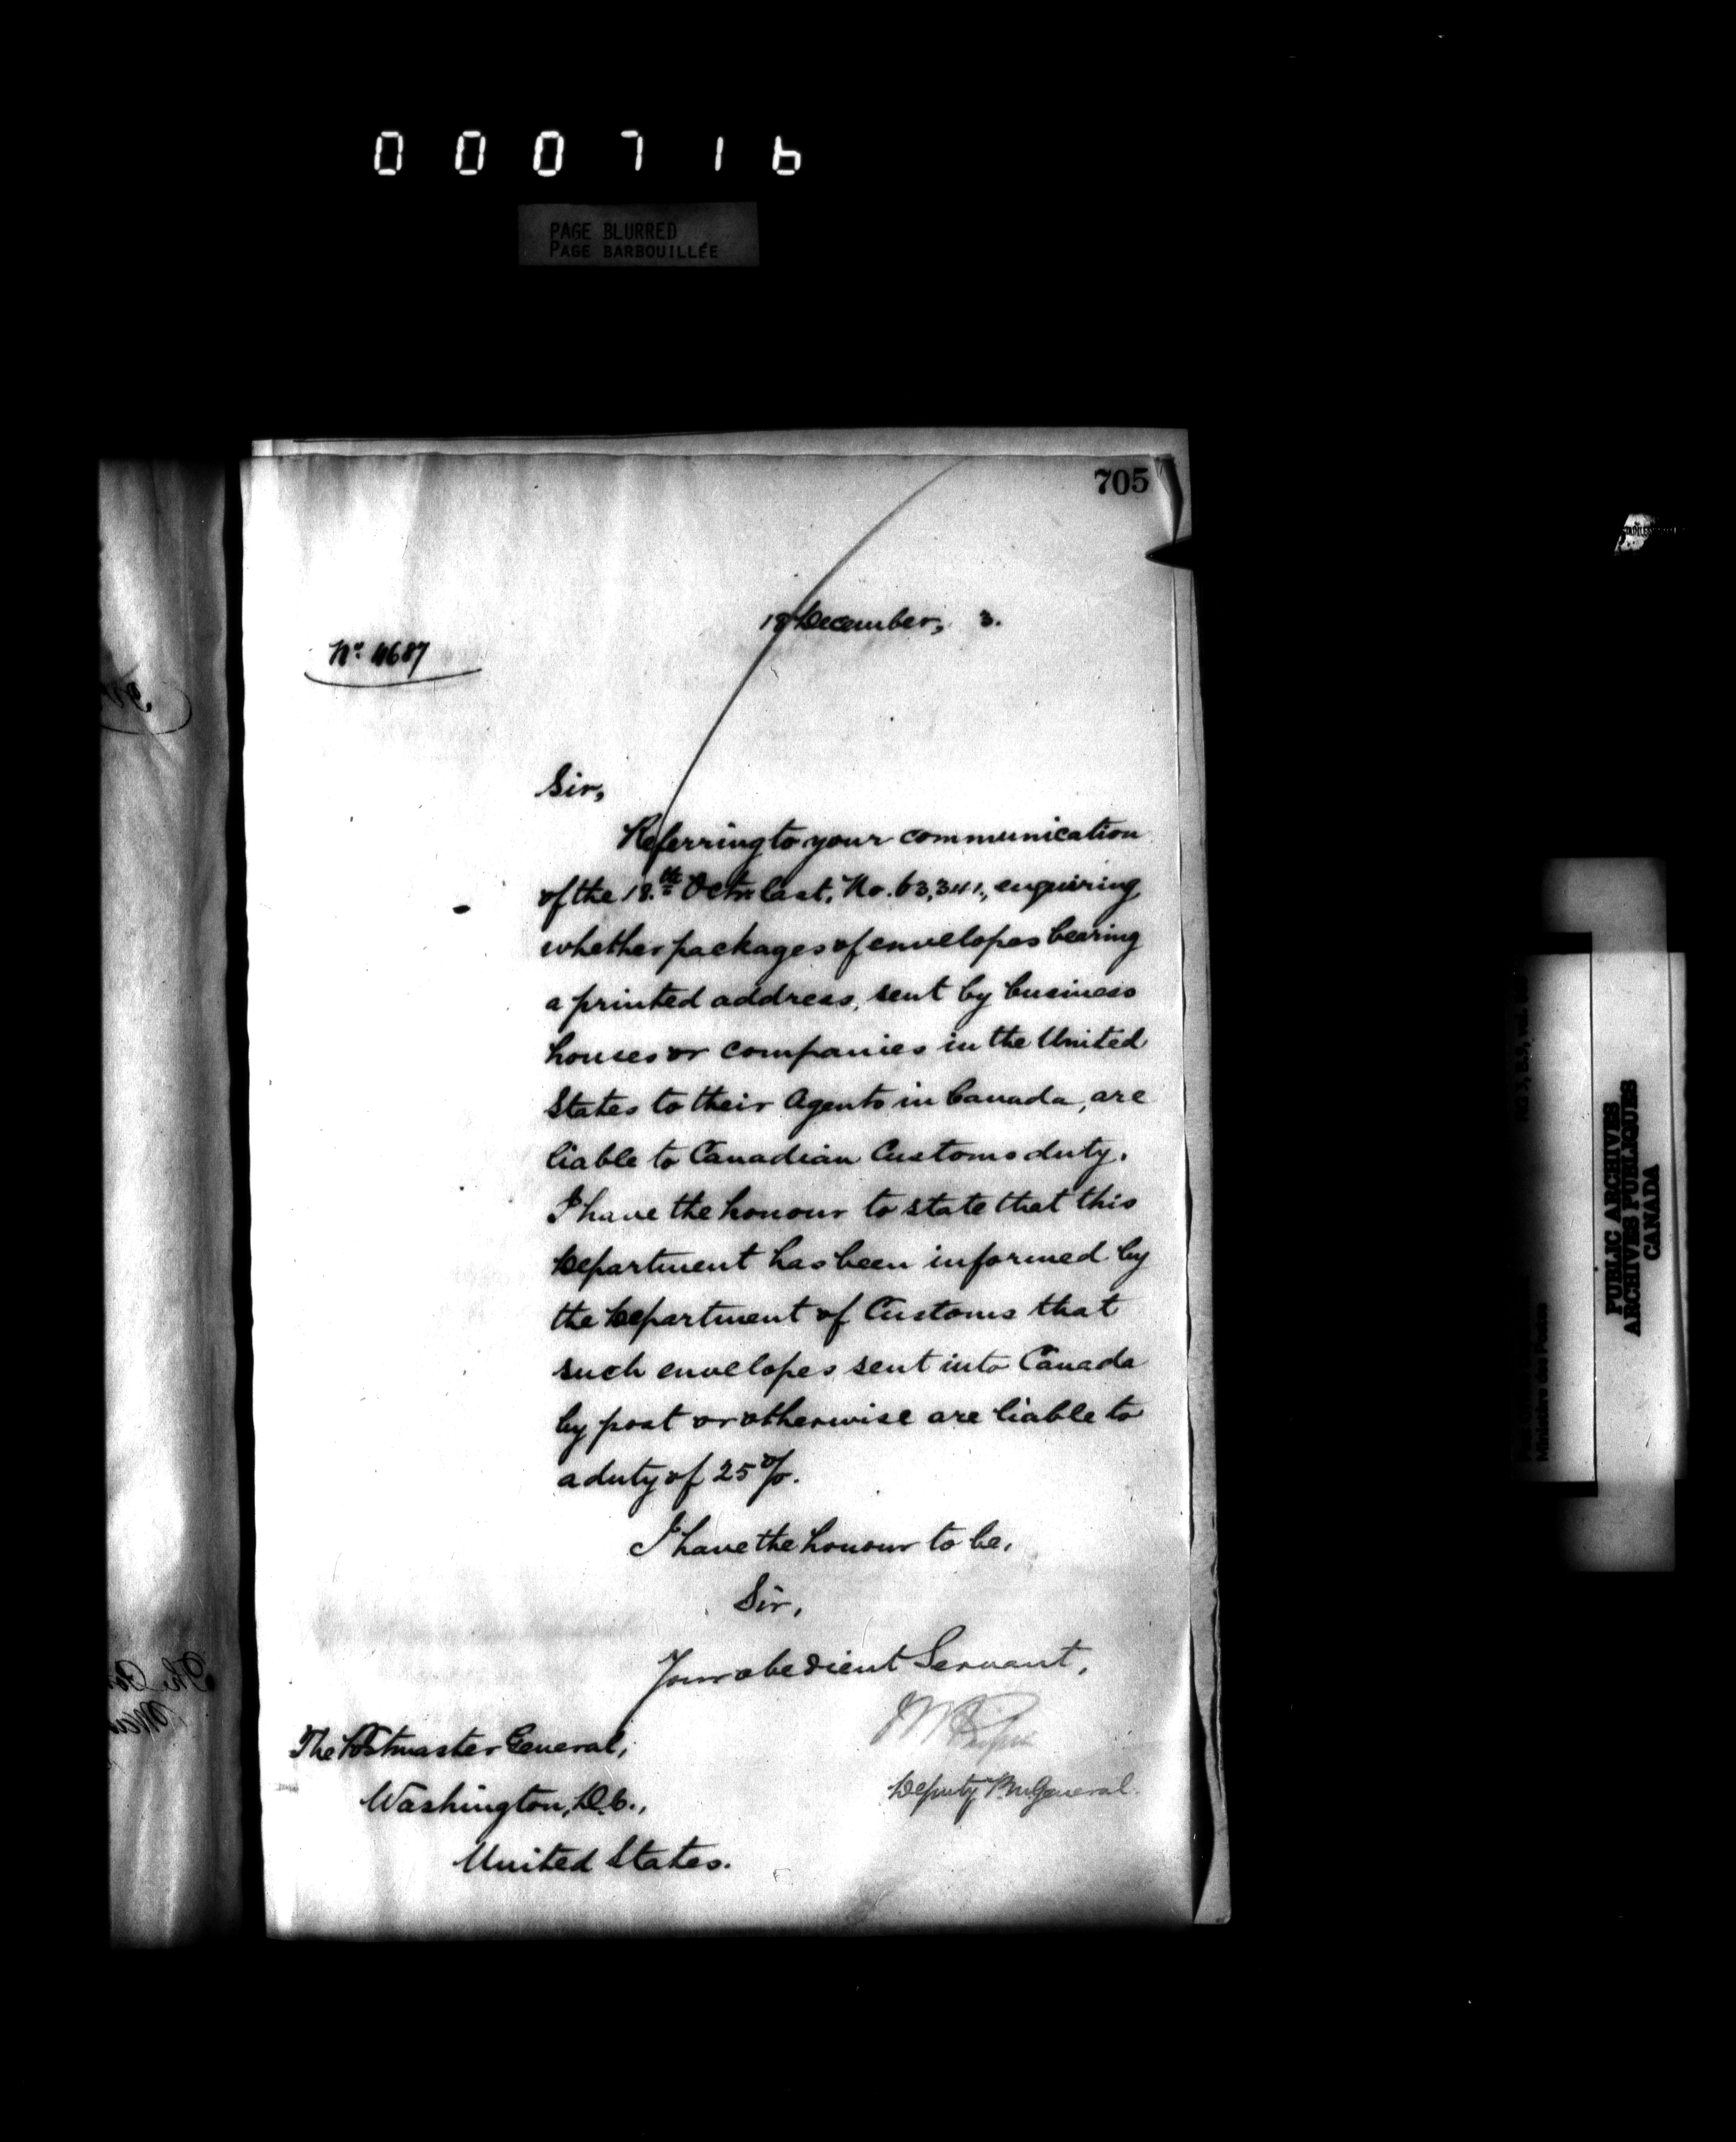 000716
PAGE BLURRED
PAGE BARBOUILLÉE
705
18 December, 3.
No. 4687
Sir,
Referring to your communication
of the 18.th Octr. last, No. 63,341, enquiring
whether packages of envelopes bearing
a printed address, sent by business
houses or companies in the United
States to their Agents in Canada, are
liable to Canadian Customs duty.
I have the honour to state that this
Department has been informed by
the Department of Customs that
such envelopes sent into Canada
by post or otherwise are liable to
a duty of 25 %.
I have the honour to be,
Sir,
Your obedient Servant,
Deputy P.M. General.
The Postmaster General,
Washington, D.C.,
United States.
PUBLIC ARCHIVES
ARCHIVES PUBLIQUES
CANADA
Ministère des Postes